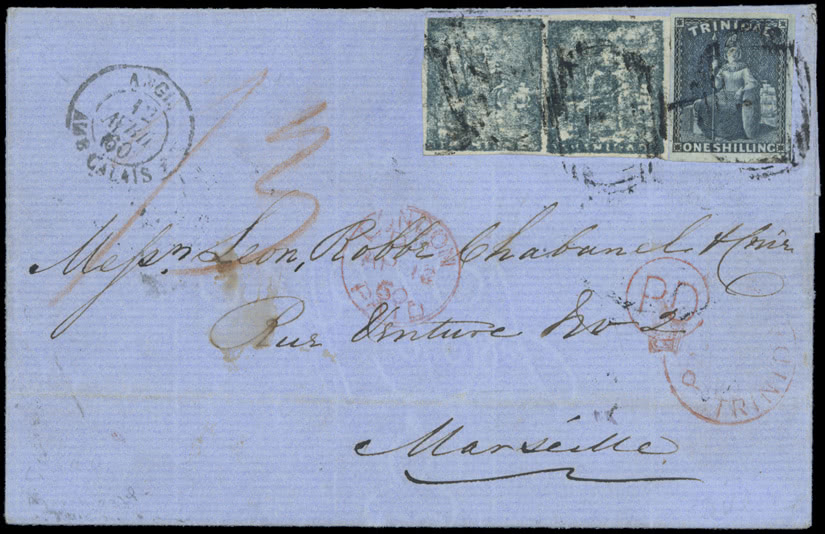 TRINIDAD
ONE SHILLING
ANGL.
12
AVRIL
60
AMB. CALAIS
1/3
LONDON
60
PAID
PD
TRINIDAD
Messrs Leon, Robbe Chabanel & Cnie
Rue Venture No 2
Marséille